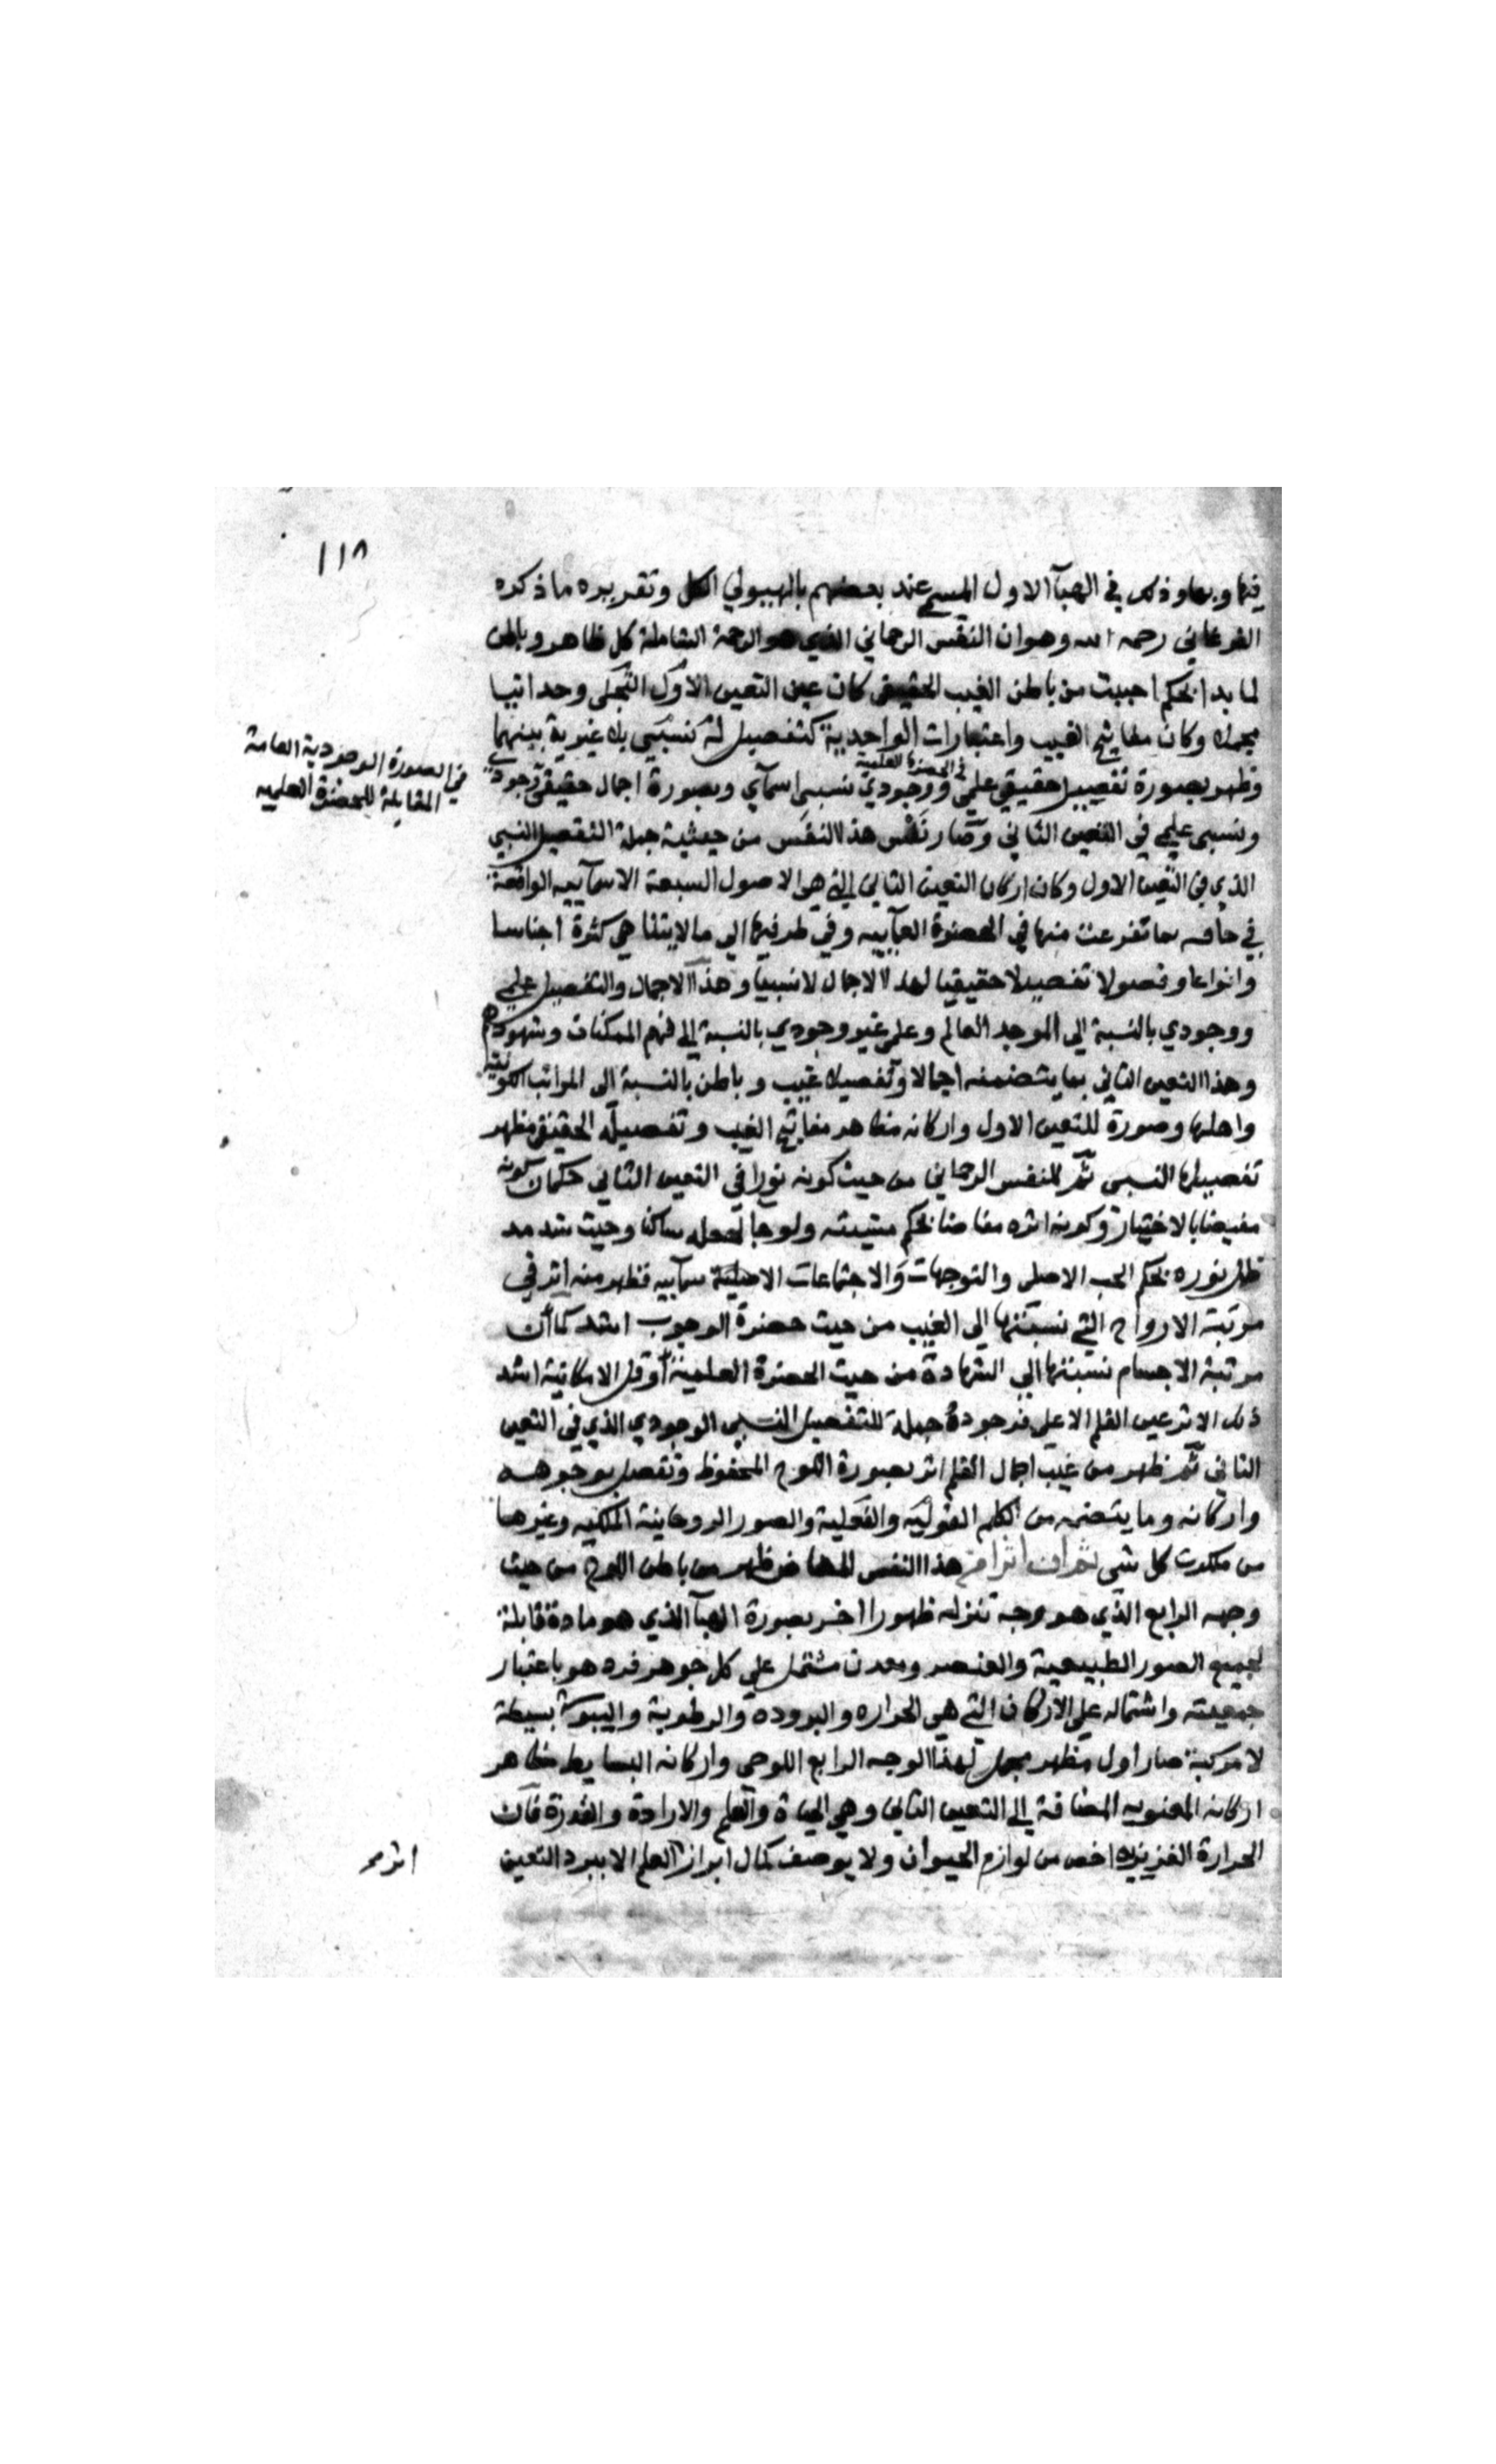 ١١٨
فيها وبها وذلك في الهبآ الاول المسمى عند بعضهم بالهيولي الكل وتقريره ما ذكره
الفرغاني رحمه الله وهو ان النفس الرحماني الذي هو الرحمة الشاملة كل ظاهر وباطن
لما بدا بحكم احببت من باطن الغيب الحقيقى كان عين التعين الاول التجلى وحدانيا
مجملا وكان مفاتيح الغيب واعتبارات الواحدية كتفصيل له نسبي بلا غيرية بينهما
وظهر بصورة تفصيل حقيقي علمي في الحضرة العلمية ووجودي نسبى اسمآي وبصورة اجمال حقيقى وجودي
في الصورة الوجودية العامة
المقابلة للحضرة العلميه
ونسبى علمي في التعين الثاني وصار نفس هذا النفس من حيثية جملة التفصيل النسبي
الذي في التعين الاول وكان اركان التعين الثاني التي هي الاصول السبعة الاسمآييه الواقعة
في حاقه بما تفرعت منها في الحضرة العمآييه وفي طرفيها الى ما لا يتناهى كثرة اجناسا
وانواعا وفصولا تفصيلا حقيقيا لهذا الاجمال لا نسبيا وهذا الاجمال والتفصيل علمي
ووجودي بالنسبة الى الموجد العالم وعلمى غير وجودي بالنسبة الى فهم الممكنات وشهودهم
وهذا التعين الثاني بما يتضمنه اجمالا وتفصيلا غيب وباطن بالنسبة الى المراتب الكونيه
واهلها وصورة للتعين الاول واركانه مظاهر مفاتيح الغيب وتفصيله الحقيقى مظهر
تفصيلها النسبى ثم للنفس الرحماني من حيث كونه نورا في التعين الثاني حكمان كونه
مفيضا بالاختيار وكونه اثره مفاضا بحكم مشيئته ولو جا لجعله ساكنا وحيث شد مد
ظل نوره بحكم الحب الاصلى والتوجهات والاجتماعات الاصلية سمآييه فظهر منه اثر في
مرتبة الارواح التي نسبتها الى الغيب من حيث حضرة الوجوب اشد كما ان
مرتبة الاجسام نسبتها الى الشهادة من حيث الحضرة العلمية او قل الامكانية اشد
ذلك الاثر عين القلم الاعلى فوجوده جملة للتفصيل النسبى الوجودي الذي في التعين
الثاني ثم ظهر من غيب اجمال القلم اثر بصورة اللوح المحفوظ وتفصل بوجوهه
واركانه وما يتضمنه من الكلم القوليه والفعلية والصور الروحانية الملكيه وغيرها
من ملكوت كل شى ثم ان اثرا من هذا النفس المفاض ظهر من باطن اللوح من حيث
وجهه الرابع الذي هو وجه تنزله ظهورا اخر بصورة الهبآ الذي هو مادة قابلة
لجميع الصور الطبيعية والعنصر ومعدن مشتمل على كل جوهر فرد هو باعتبار
جمعيته واشتماله على الاركان التي هي الحراره والبروده والرطوبة واليبوسة بسيطة
لا مركبة صار اول مظهر مجمل لهذا الوجه الرابع اللوحى واركانه البسايط مظاهر
اركانه المعنويه المضافة الى التعين الثاني وهي الحياة والعلم والارادة والقدرة فان
الحرارة الغريزيه اخص من لوازم الحيوان ولا يوصف كمال ابراز العلم الا ببرد التعين